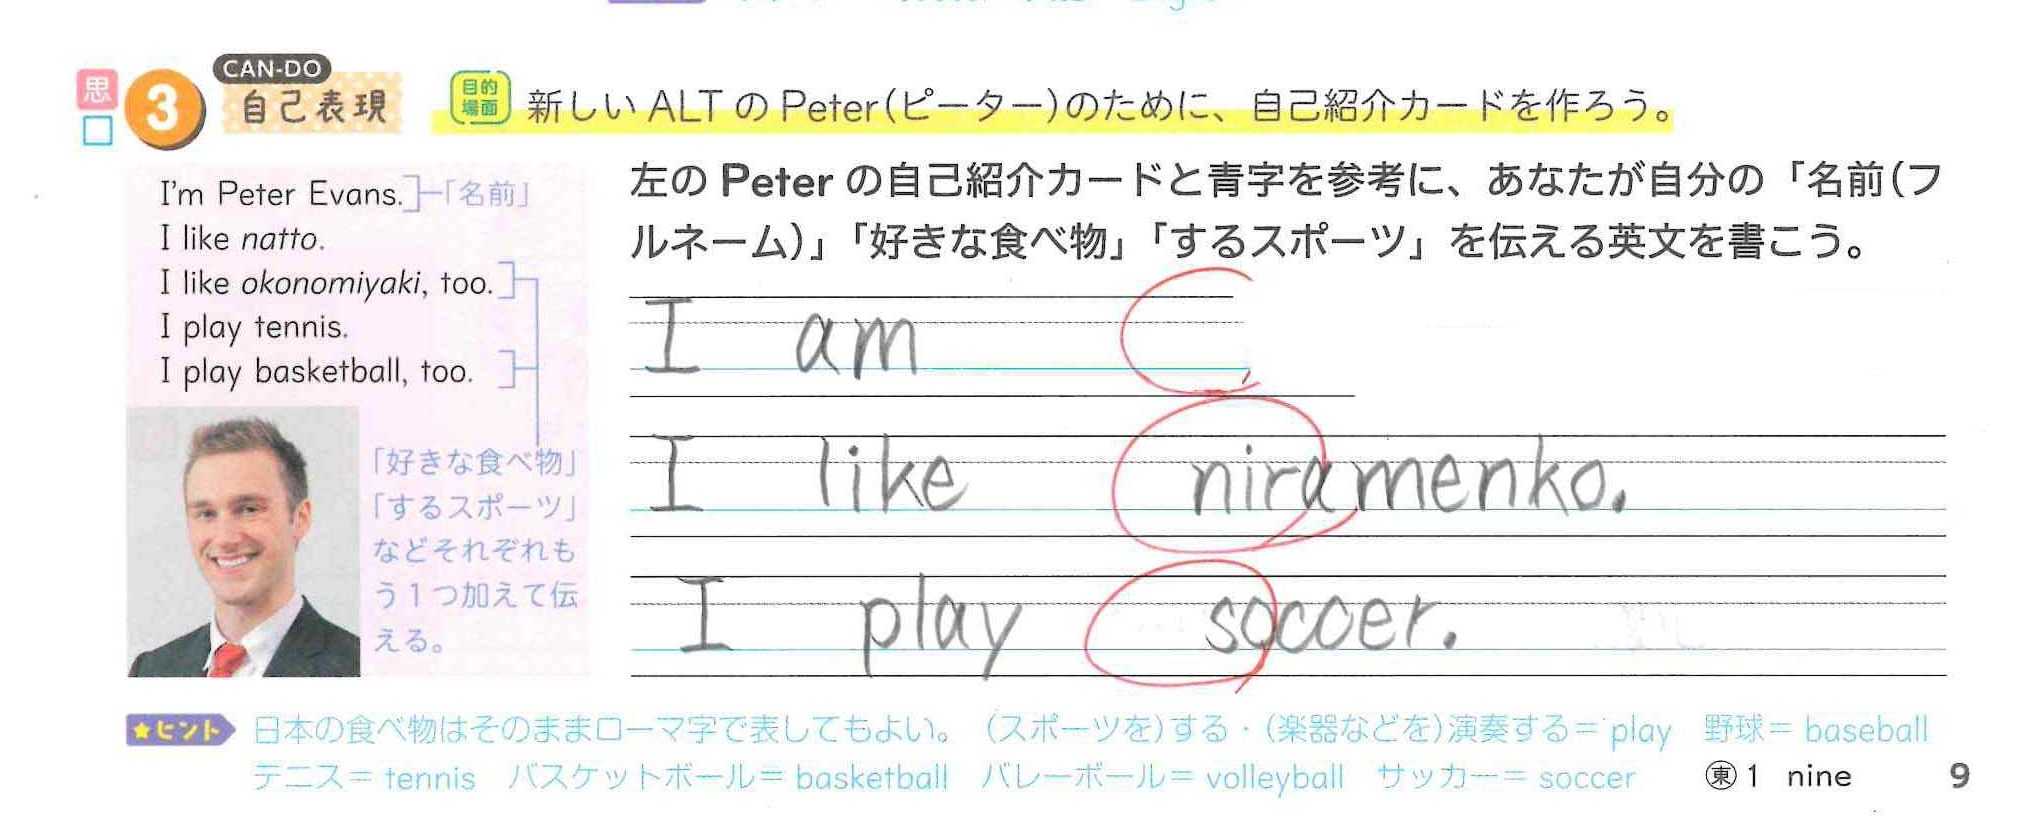 思
3
CAN-DO
自己表現
目的
場面
新しい ALT の Peter(ピーター)のために、自己紹介カードを作ろう。
左の Peter の自己紹介カードと青字を参考に、あなたが自分の「名前(フ
ルネーム)」「好きな食べ物」「するスポーツ」を伝える英文を書こう。
I'm Peter Evans. 「名前」
I like natto.
I like okonomiyaki, too.
I play tennis.
I play basketball, too.
「好きな食べ物」
「するスポーツ」
などそれぞれも
う1つ加えて伝
える。
I am
I like niramenko.
I play soccer.
★ヒント 日本の食べ物はそのままローマ字で表してもよい。 (スポーツを)する・(楽器などを)演奏する= play 野球= baseball
テニス= tennis バスケットボール= basketball バレーボール= volleyball サッカー= soccer
東1 nine 9